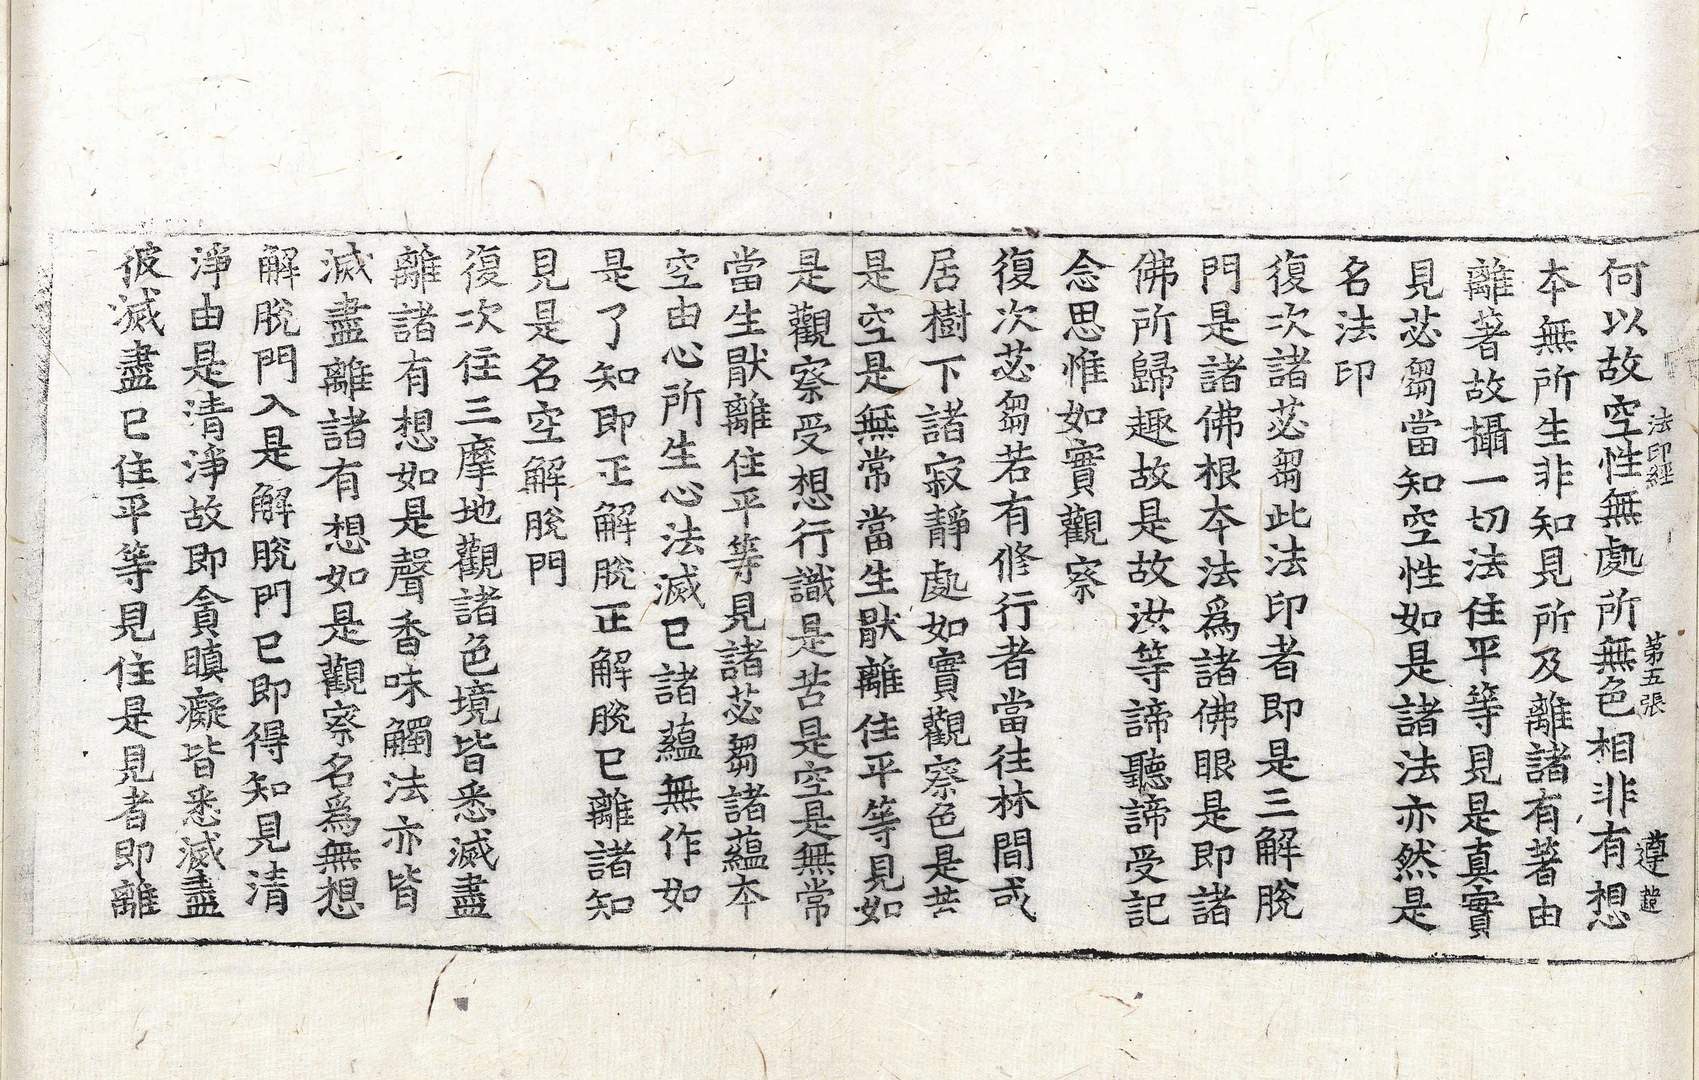 法印經 第五張 遵
何以故空性無處所無色相非有想
本無所生非知見所及離諸有著由
離著故攝一切法住平等見是真實
見苾芻當知空性如是諸法亦然是
名法印
復次諸苾芻此法印者即是三解脫
門是諸佛根本法為諸佛眼是即諸
佛所歸趣故是故汝等諦聽諦受記
念思惟如實觀察
復次苾芻若有修行者當往林間或
居樹下諸寂靜處如實觀察色是苦
是空是無常當生猒離住平等見如
是觀察受想行識是苦是空是無常
當生猒離住平等見諸苾芻諸蘊本
空由心所生心法滅已諸蘊無作如
是了知即正解脫正解脫已離諸知
見是名空解脫門
復次住三摩地觀諸色境皆悉滅盡
離諸有想如是聲香味觸法亦皆
滅盡離諸有想如是觀察名為無想
解脫門入是解脫門已即得知見清
淨由是清淨故即貪瞋癡皆悉滅盡
彼滅盡已住平等見住是見者即離